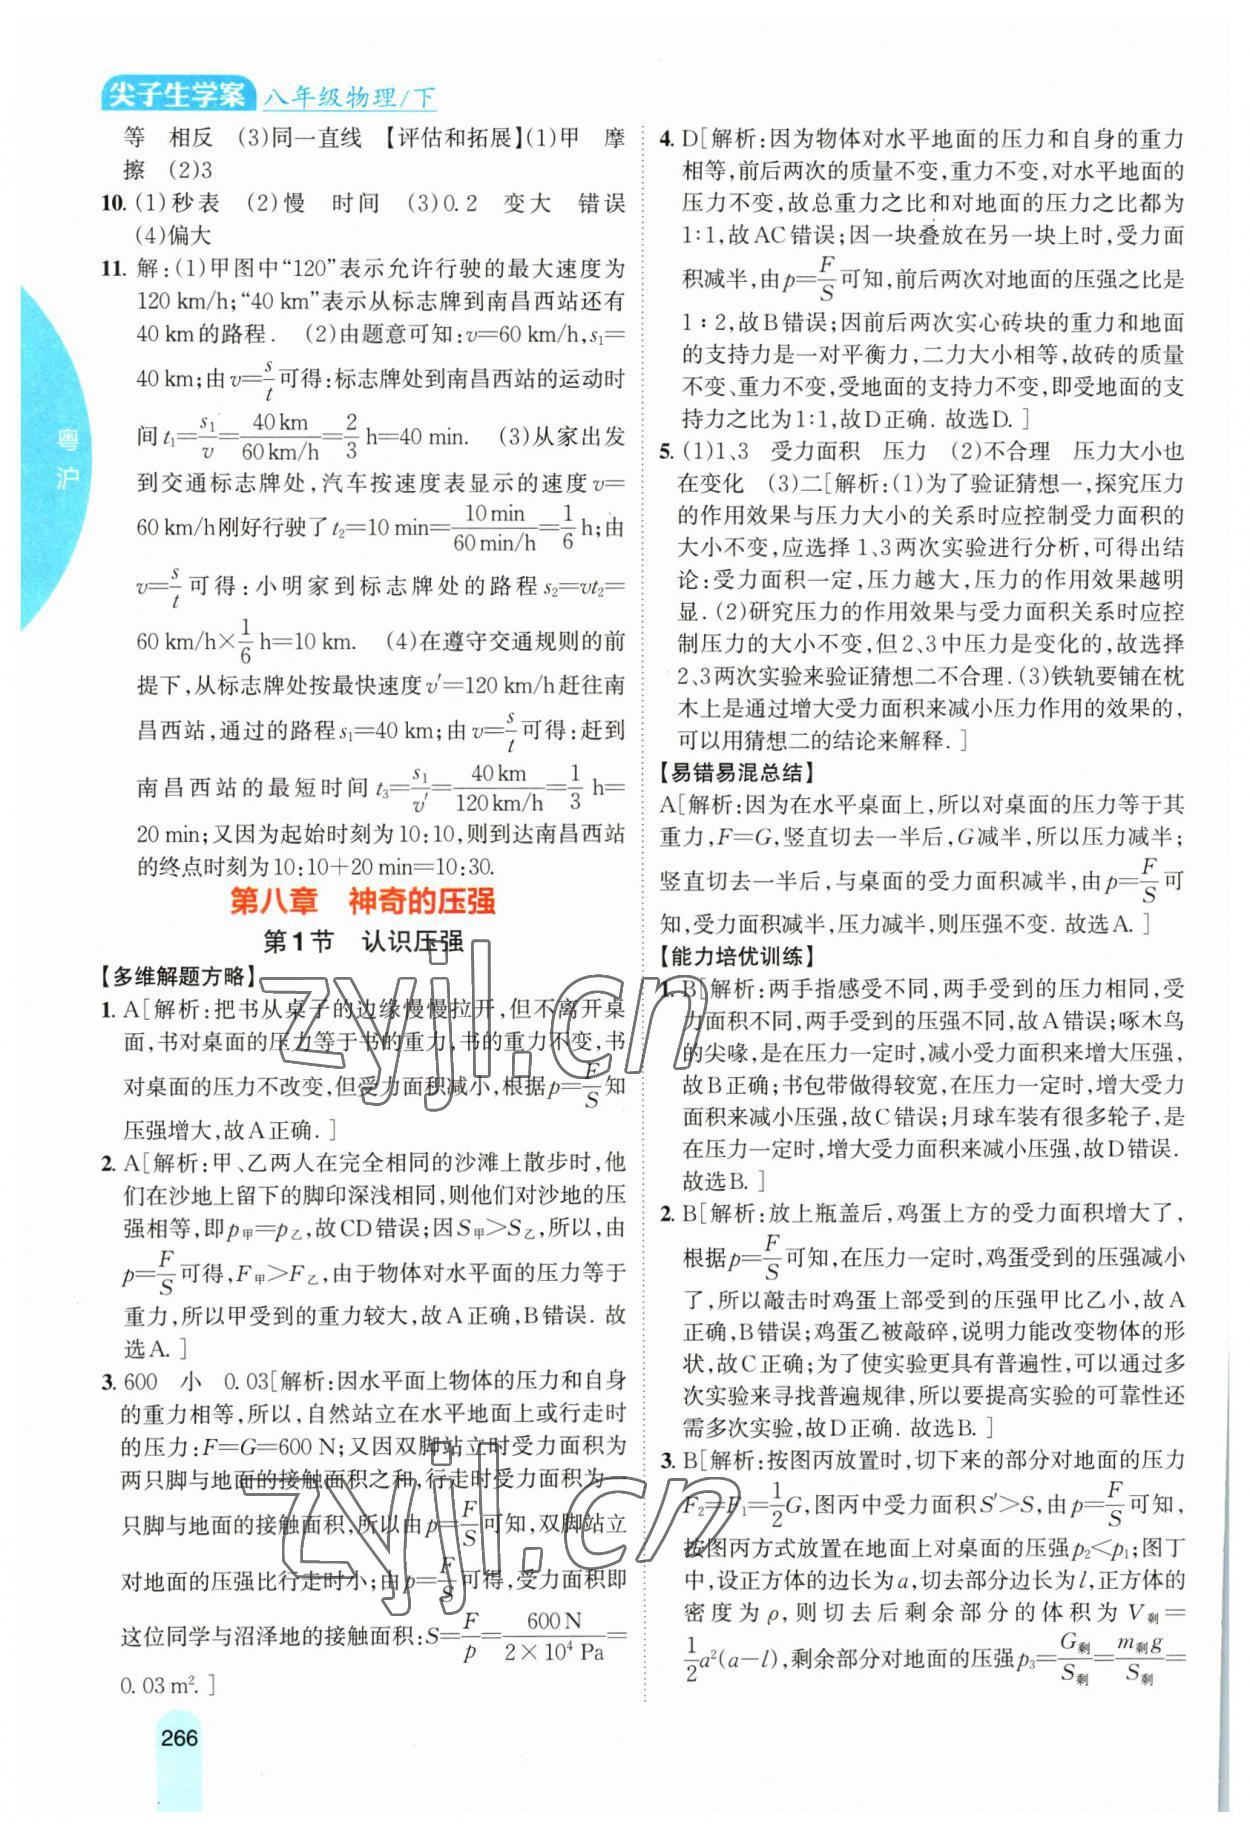 尖子生学案 八年级物理/下
等 相反 (3)同一直线 【评估和拓展】(1)甲 摩
擦 (2)3
10. (1)秒表 (2)慢 时间 (3)0.2 变大 错误
(4)偏大
11. 解:(1)甲图中“120”表示允许行驶的最大速度为
120 km/h;“40 km”表示从标志牌到南昌西站还有
40 km的路程. (2)由题意可知:v=60 km/h,s₁=
40 km;由v=s/t可得:标志牌处到南昌西站的运动时
间t₁=s₁/v=40 km/60 km/h=2/3 h=40 min. (3)从家出发
到交通标志牌处,汽车按速度表显示的速度v=
60 km/h刚好行驶了t₂=10 min=10 min/60 min/h=1/6 h;由
v=s/t可得:小明家到标志牌处的路程s₂=vt₂=
60 km/h×1/6 h=10 km. (4)在遵守交通规则的前
提下,从标志牌处按最快速度v′=120 km/h赶往南
昌西站,通过的路程s₁=40 km;由v=s/t可得:赶到
南昌西站的最短时间t₃=s₁/v′=40 km/120 km/h=1/3 h=
20 min;又因为起始时刻为10:10,则到达南昌西站
的终点时刻为10:10+20 min=10:30.
第八章 神奇的压强
第1节 认识压强
【多维解题方略】
1. A[解析:把书从桌子的边缘慢慢拉开,但不离开桌
面,书对桌面的压力等于书的重力,书的重力不变,书
对桌面的压力不改变,但受力面积减小,根据p=F/S知
压强增大,故A正确.]
2. A[解析:甲、乙两人在完全相同的沙滩上散步时,他
们在沙地上留下的脚印深浅相同,则他们对沙地的压
强相等,即p甲=p乙,故CD错误;因S甲>S乙,所以,由
p=F/S可得,F甲>F乙,由于物体对水平面的压力等于
重力,所以甲受到的重力较大,故A正确,B错误.故
选A.]
3. 600 小 0.03[解析:因水平面上物体的压力和自身
的重力相等,所以,自然站立在水平地面上或行走时
的压力:F=G=600 N;又因双脚站立时受力面积为
两只脚与地面的接触面积之和,行走时受力面积为一
只脚与地面的接触面积,所以由p=F/S可知,双脚站立
对地面的压强比行走时小;由p=F/S可得,受力面积即
这位同学与沼泽地的接触面积:S=F/p=600 N/2×10⁴ Pa=
0.03 m².]
4. D[解析:因为物体对水平地面的压力和自身的重力
相等,前后两次的质量不变,重力不变,对水平地面的
压力不变,故总重力之比和对地面的压力之比都为
1:1,故AC错误;因一块叠放在另一块上时,受力面
积减半,由p=F/S可知,前后两次对地面的压强之比是
1:2,故B错误;因前后两次实心砖块的重力和地面
的支持力是一对平衡力,二力大小相等,故砖的质量
不变、重力不变,受地面的支持力不变,即受地面的支
持力之比为1:1,故D正确.故选D.]
5. (1)1、3 受力面积 压力 (2)不合理 压力大小也
在变化 (3)二[解析:(1)为了验证猜想一,探究压力
的作用效果与压力大小的关系时应控制受力面积的
大小不变,应选择1、3两次实验进行分析,可得出结
论:受力面积一定,压力越大,压力的作用效果越明
显.(2)研究压力的作用效果与受力面积关系时应控
制压力的大小不变,但2、3中压力是变化的,故选择
2、3两次实验来验证猜想二不合理.(3)铁轨要铺在枕
木上是通过增大受力面积来减小压力作用的效果的,
可以用猜想二的结论来解释.]
【易错易混总结】
A[解析:因为在水平桌面上,所以对桌面的压力等于其
重力,F=G,竖直切去一半后,G减半,所以压力减半;
竖直切去一半后,与桌面的受力面积减半,由p=F/S可
知,受力面积减半,压力减半,则压强不变.故选A.]
【能力培优训练】
1. B[解析:两手指感受不同,两手受到的压力相同,受
力面积不同,两手受到的压强不同,故A错误;啄木鸟
的尖喙,是在压力一定时,减小受力面积来增大压强,
故B正确;书包带做得较宽,在压力一定时,增大受力
面积来减小压强,故C错误;月球车装有很多轮子,是
在压力一定时,增大受力面积来减小压强,故D错误.
故选B.]
2. B[解析:放上瓶盖后,鸡蛋上方的受力面积增大了,
根据p=F/S可知,在压力一定时,鸡蛋受到的压强减小
了,所以敲击时鸡蛋上部受到的压强甲比乙小,故A
正确,B错误;鸡蛋乙被敲碎,说明力能改变物体的形
状,故C正确;为了使实验更具有普遍性,可以通过多
次实验来寻找普遍规律,所以要提高实验的可靠性还
需多次实验,故D正确.故选B.]
3. B[解析:按图丙放置时,切下来的部分对地面的压力
F₂=F₁=1/2G,图丙中受力面积S′>S,由p=F/S可知,
按图丙方式放置在地面上对桌面的压强p₂<p₁;图丁
中,设正方体的边长为a,切去部分边长为l,正方体的
密度为ρ,则切去后剩余部分的体积为V剩=
1/2a²(a-l),剩余部分对地面的压强p₃=G剩/S剩=m剩g/S剩=
粤沪
266
zyjl.cn
zyjl.cn